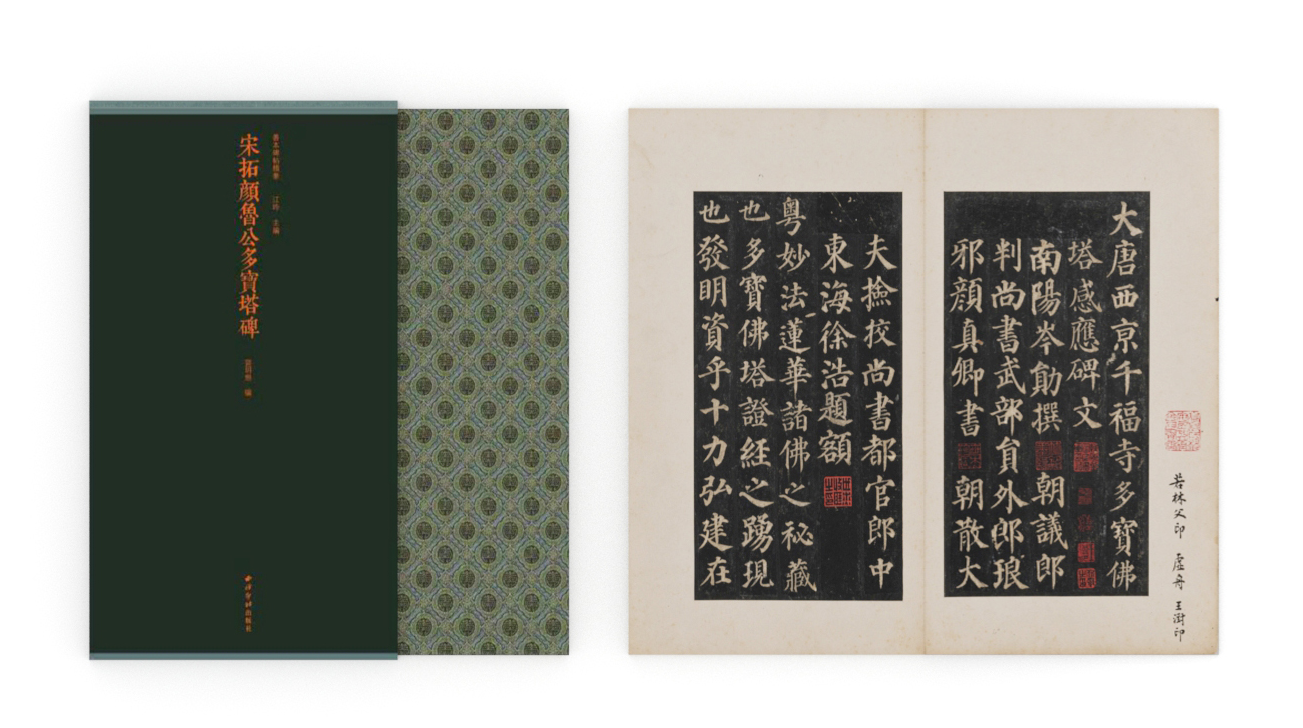 善本碑帖精華 江吟 主編
宋拓顏魯公多寶塔碑
編
西泠印社出版社
若林父印 虛舟 王澍印
大唐西亰千福寺多寶佛
塔感應碑文
南陽岑勛撰 朝議郎
判尚書武部員外郎琅
邪顏真卿書 朝散大
夫撿挍尚書都官郎中
東海徐浩題額
粵妙法蓮華諸佛之秘藏
也多寶佛塔證經之踴現
也發明資乎十力弘建在